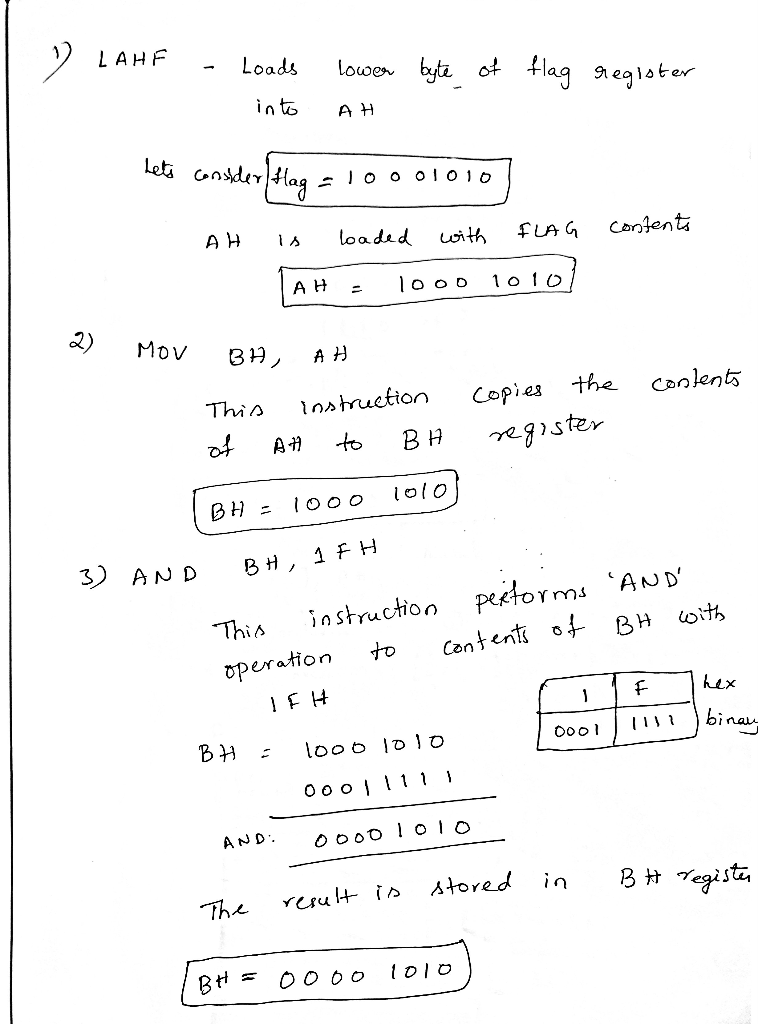 1) LAHF - Loads lower byte of flag register
into AH
Lets consider flag = 10001010
AH is loaded with FLAG contents
AH = 1000 1010
2) MOV BH, AH
This instruction copies the contents
of AH to BH register
BH = 1000 1010
3) AND BH, 1FH
This instruction performs 'AND'
operation to contents of BH with
1FH
1 F hex
0001 1111 binary
BH = 1000 1010
00011111
AND: 00001010
The result is stored in BH register
BH = 0000 1010